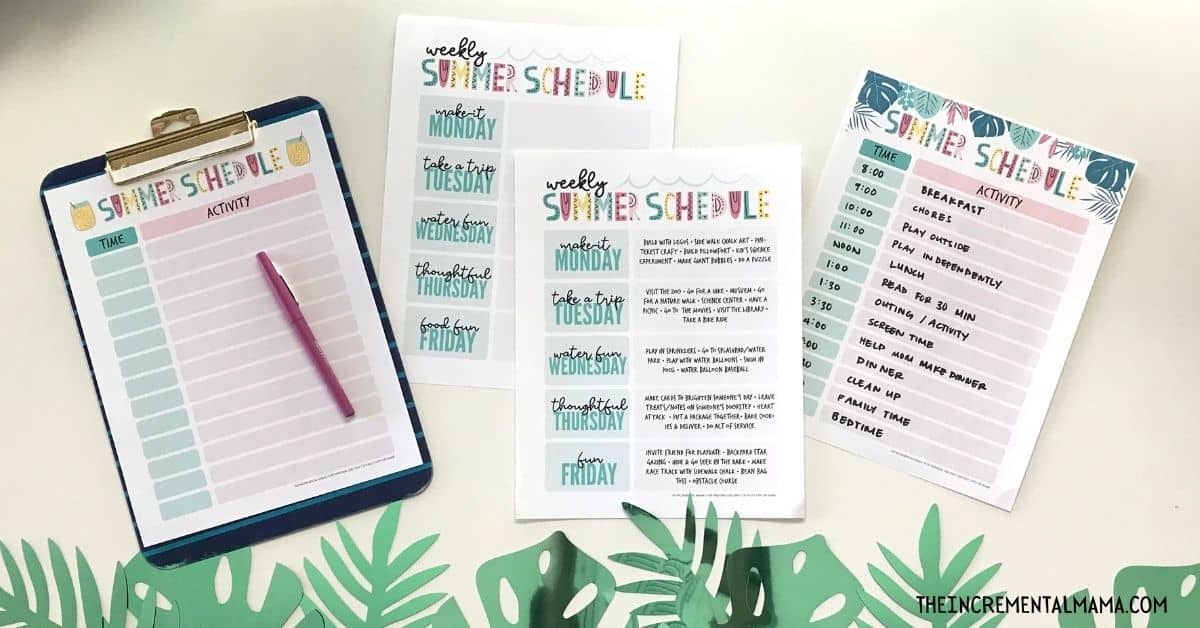 SUMMER SCHEDULE
ACTIVITY
TIME
weekly
SUMMER SCHEDULE
make-it
MONDAY
take a trip
TUESDAY
water fun
WEDNESDAY
thoughtful
THURSDAY
food fun
FRIDAY
weekly
SUMMER SCHEDULE
make-it
MONDAY
BUILD WITH LEGOS • SIDE WALK CHALK ART • PIN-
TEREST CRAFT • BUILD PILLOWFORT • KID'S SCIENCE
EXPERIMENT • MAKE GIANT BUBBLES • DO A PUZZLE
take a trip
TUESDAY
VISIT THE ZOO • GO FOR A HIKE • MUSUEM • GO
FOR A NATURE WALK • SCIENCE CENTER • HAVE A
PICNIC • GO TO THE MOVIES • VISIT THE LIBRARY •
TAKE A BIKE RIDE
water fun
WEDNESDAY
PLAY IN SPRINKLERS • GO TO SPLASHPAD/WATER
PARK • PLAY WITH WATER BALLOONS • SWIM IN
POOL • WATER BALLOON BASEBALL
thoughtful
THURSDAY
MAKE CARDS TO BRIGHTEN SOMEONE'S DAY • LEAVE
TREATS/NOTES ON SOMEONE'S DOORSTEP • HEART
ATTACK • PUT A PACKAGE TOGETHER • BAKE COOK-
IES & DELIVER • DO ACT OF SERVICE
fun
FRIDAY
INVITE FRIEND FOR PLAYDATE • BACKYARD STAR
GAZING • HIDE & GO SEEK IN THE DARK • MAKE
RACE TRACK WITH SIDEWALK CHALK • BEAN BAG
TOSS • OBSTACLE COURSE
SUMMER SCHEDULE
TIME ACTIVITY
8:00 BREAKFAST
9:00 CHORES
10:00 PLAY OUTSIDE
11:00 PLAY INDEPENDENTLY
NOON LUNCH
1:00 READ FOR 30 MIN
1:30 OUTING / ACTIVITY
3:30 SCREEN TIME
4:00 HELP MOM MAKE DINNER
DINNER
CLEAN UP
FAMILY TIME
BEDTIME
THEINCREMENTALMAMA.COM